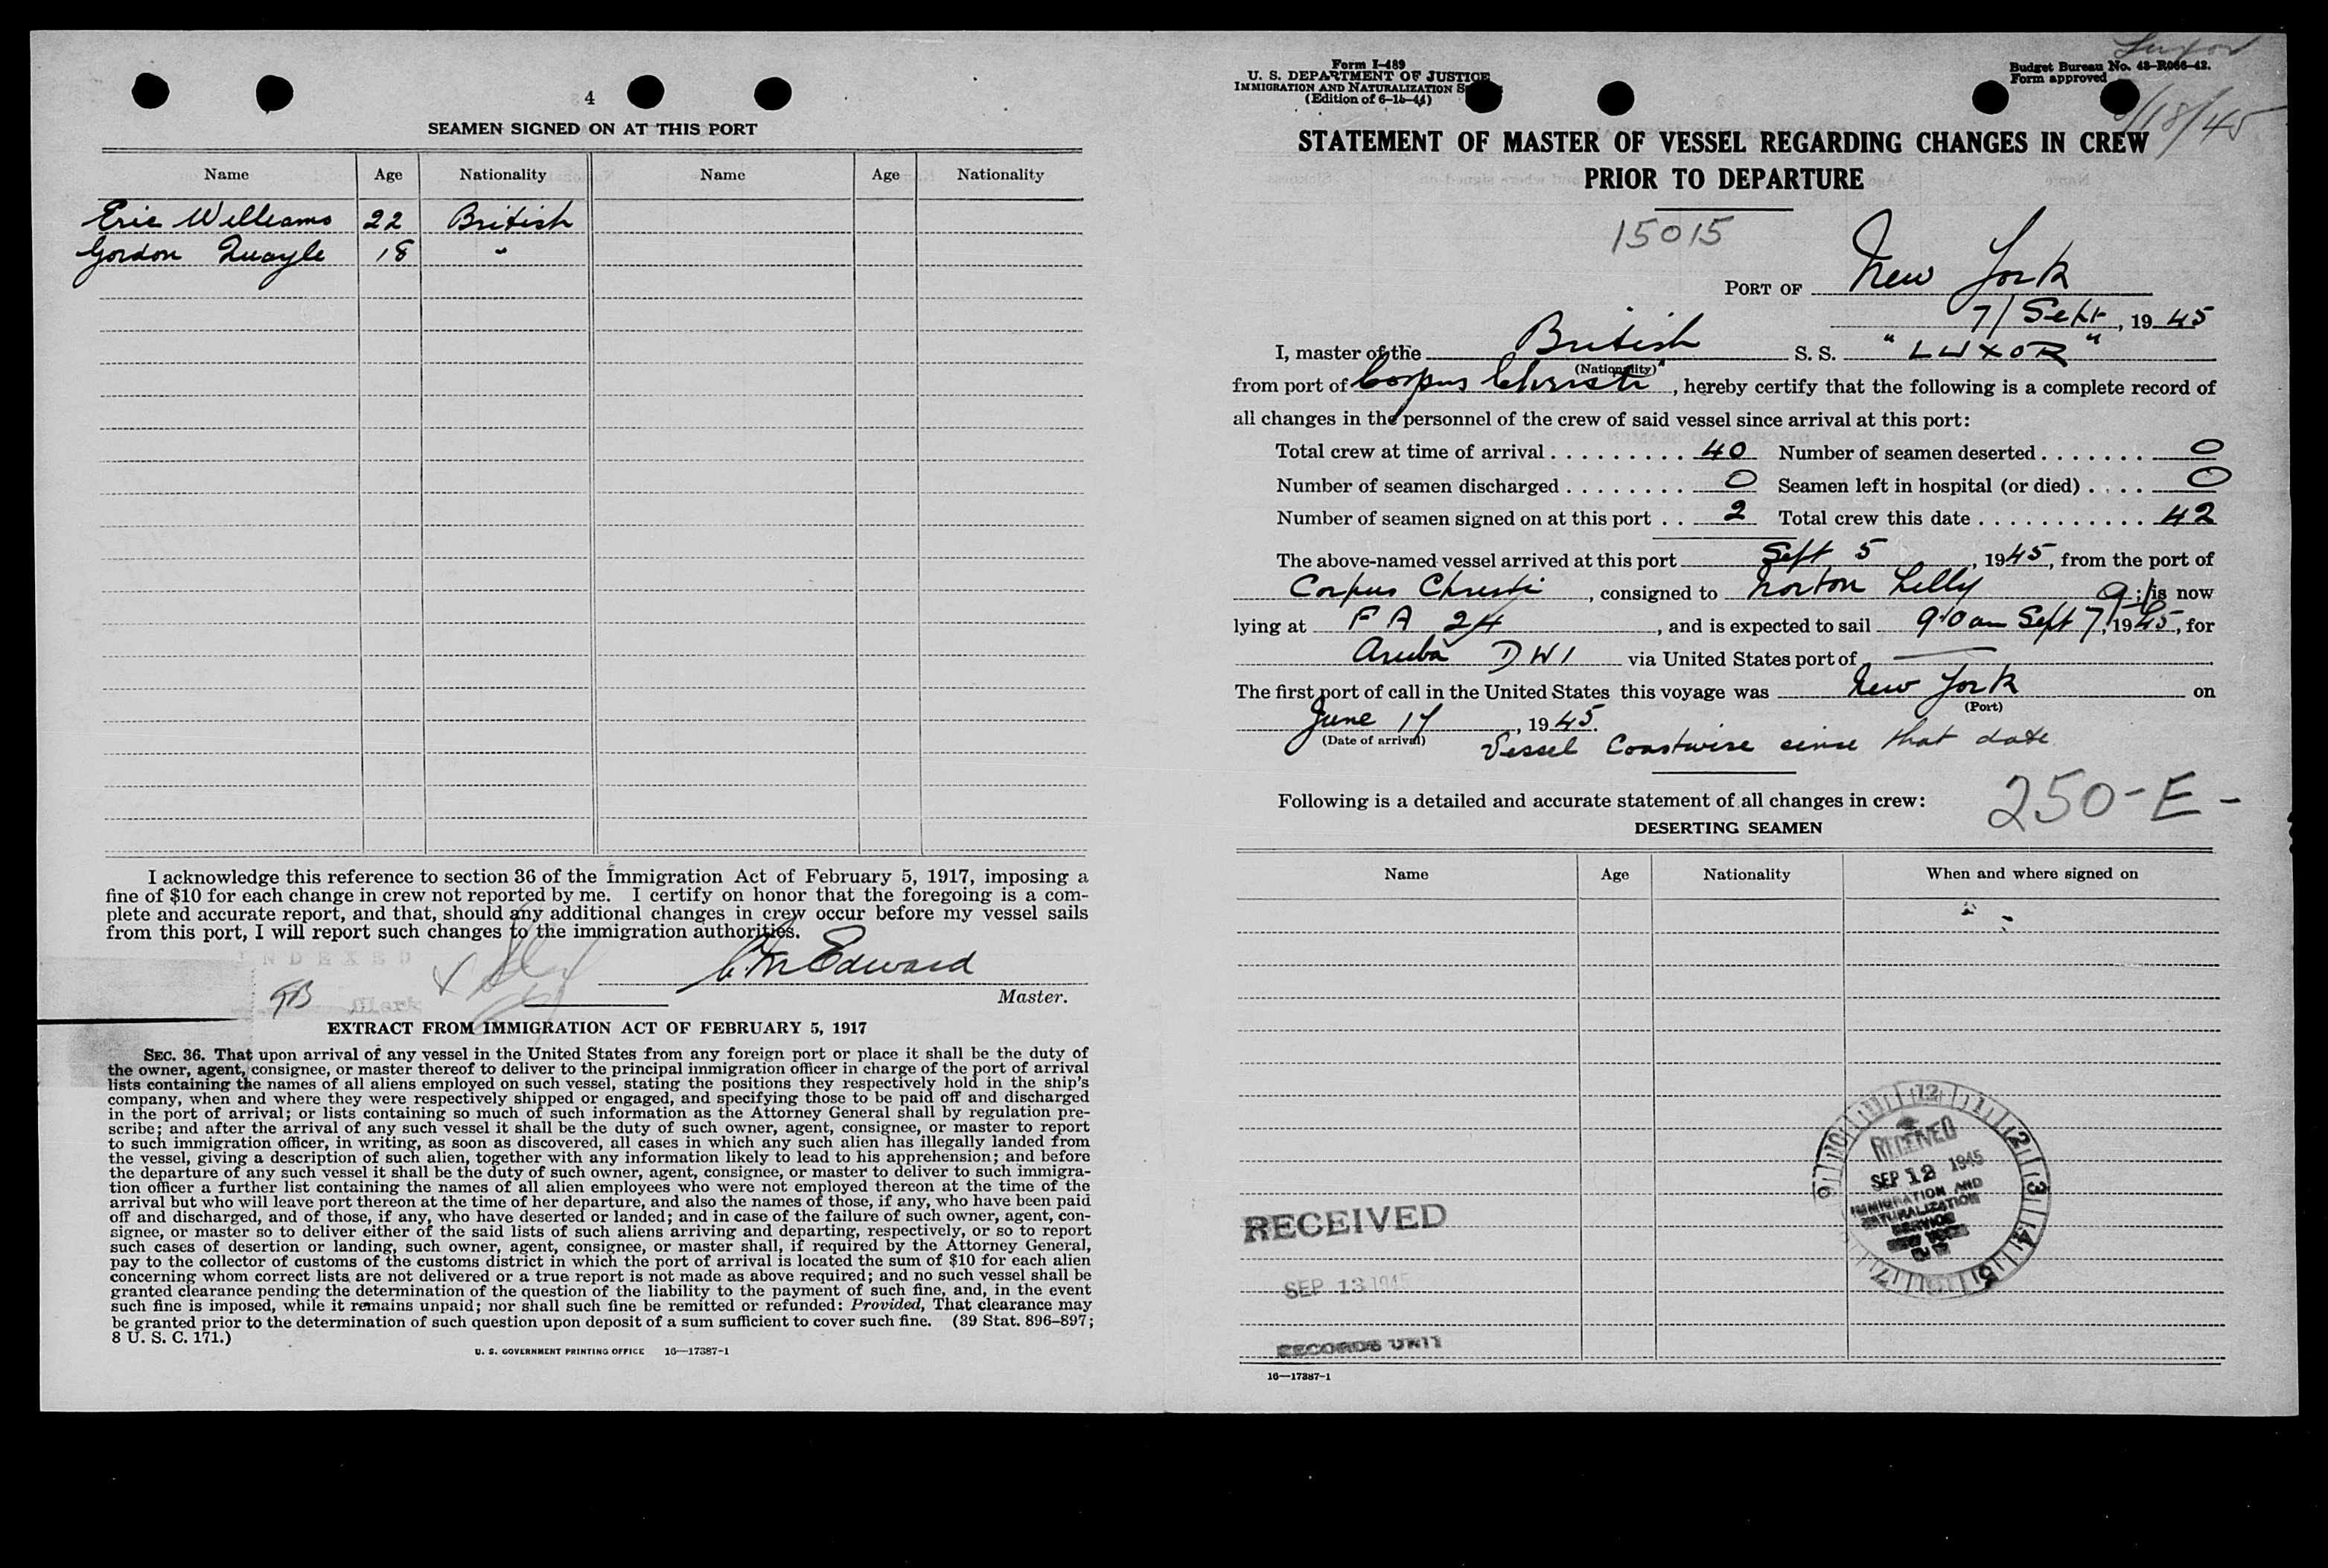 4
SEAMEN SIGNED ON AT THIS PORT
Name Age Nationality Name Age Nationality
Eric Williams 22 British
Gordon Quayle 18 "
I acknowledge this reference to section 36 of the Immigration Act of February 5, 1917, imposing a
fine of $10 for each change in crew not reported by me. I certify on honor that the foregoing is a com-
plete and accurate report, and that, should any additional changes in crew occur before my vessel sails
from this port, I will report such changes to the immigration authorities.
INDEXED
Edward
Clerk
Master.
EXTRACT FROM IMMIGRATION ACT OF FEBRUARY 5, 1917
SEC. 36. That upon arrival of any vessel in the United States from any foreign port or place it shall be the duty of
the owner, agent, consignee, or master thereof to deliver to the principal immigration officer in charge of the port of arrival
lists containing the names of all aliens employed on such vessel, stating the positions they respectively hold in the ship's
company, when and where they were respectively shipped or engaged, and specifying those to be paid off and discharged
in the port of arrival; or lists containing so much of such information as the Attorney General shall by regulation pre-
scribe; and after the arrival of any such vessel it shall be the duty of such owner, agent, consignee, or master to report
to such immigration officer, in writing, as soon as discovered, all cases in which any such alien has illegally landed from
the vessel, giving a description of such alien, together with any information likely to lead to his apprehension; and before
the departure of any such vessel it shall be the duty of such owner, agent, consignee, or master to deliver to such immigra-
tion officer a further list containing the names of all alien employees who were not employed thereon at the time of the
arrival but who will leave port thereon at the time of her departure, and also the names of those, if any, who have been paid
off and discharged, and of those, if any, who have deserted or landed; and in case of the failure of such owner, agent, con-
signee, or master so to deliver either of the said lists of such aliens arriving and departing, respectively, or so to report
such cases of desertion or landing, such owner, agent, consignee, or master shall, if required by the Attorney General,
pay to the collector of customs of the customs district in which the port of arrival is located the sum of $10 for each alien
concerning whom correct lists are not delivered or a true report is not made as above required; and no such vessel shall be
granted clearance pending the determination of the question of the liability to the payment of such fine, and, in the event
such fine is imposed, while it remains unpaid; nor shall such fine be remitted or refunded: Provided, That clearance may
be granted prior to the determination of such question upon deposit of a sum sufficient to cover such fine. (39 Stat. 896–897;
8 U. S. C. 171.)
U. S. GOVERNMENT PRINTING OFFICE 16—17387-1
Luxor
Form I-489
U. S. DEPARTMENT OF JUSTICE
IMMIGRATION AND NATURALIZATION
(Edition of 6-15-44)
Budget Bureau No. 43-R066-42.
Form approved
/18/45
STATEMENT OF MASTER OF VESSEL REGARDING CHANGES IN CREW
PRIOR TO DEPARTURE
15015
PORT OF New York
7/ Sept, 1945
I, master of the British S. S. "LUXOR"
(Nationality)
from port of Corpus Christi, hereby certify that the following is a complete record of
all changes in the personnel of the crew of said vessel since arrival at this port:
Total crew at time of arrival . . . . . . . . . 40 Number of seamen deserted . . . . . . . 0
Number of seamen discharged . . . . . . . . 0 Seamen left in hospital (or died) . . . . 0
Number of seamen signed on at this port . . 2 Total crew this date . . . . . . . . . . . 42
The above-named vessel arrived at this port Sept 5, 1945, from the port of
Corpus Christi, consigned to Norton Lilly is now
lying at FA 24, and is expected to sail Sept 7, 1945, for
Aruba DWI via United States port of —
The first port of call in the United States this voyage was New York on
(Port)
June 17, 1945.
(Date of arrival)
Vessel Coastwise since that date
Following is a detailed and accurate statement of all changes in crew:
250-E-
DESERTING SEAMEN
Name Age Nationality When and where signed on
12 1 2 3 4 5 7 9 10 11
RECEIVED
SEP 12 1945
IMMIGRATION AND
NATURALIZATION
SERVICE
RECEIVED
SEP 13 1945
RECORDS UNIT
16—17387-1